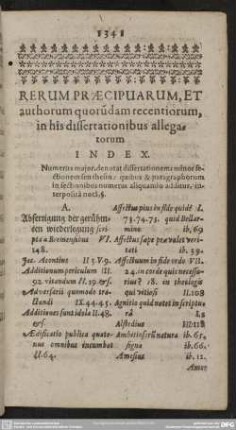 1341
RERUM PRÆCIPUARUM, ET
authorum quorũdam recentiorum,
in his dissertationibus allega-
torum
INDEX.
Numerus major, denotat dissertationem: minor se-
ctionem seu thesin: quibus & paragraphorum
in sectionibus numerus aliquando additur, in-
terposita nota §.
A.
Abfertigung der gerühm-
ten wiederlegung scri-
pta à Bremensibus VI.
148.
Jac. Acontius II 5. V. 9.
Additionum periculum III.
92. vitandum II. 39. & s.
Adversarii quomodo tra-
ctandi IX. 44. 45.
Additiones sunt idola II. 48.
& s.
Ædificatio publica quate-
nus omnibus incumbat
II. 64.
Affectus pius in fide quid? I.
73. 74. 75. quid Bellar-
mino ib. 69
Affectus sæpe prævalet veri-
tati ib. 59.
Affectuum in fide ordo VII.
24. in corde quis necessa-
rius? 18. in theologis
qui vitiosi II. 108
Agnitio quid notet in scriptu-
râ I. 2
Alstedius III. 118
Ambitus sensûs natura ib. 65.
signa ib. 66.
Amesius ib. 12.
Amor